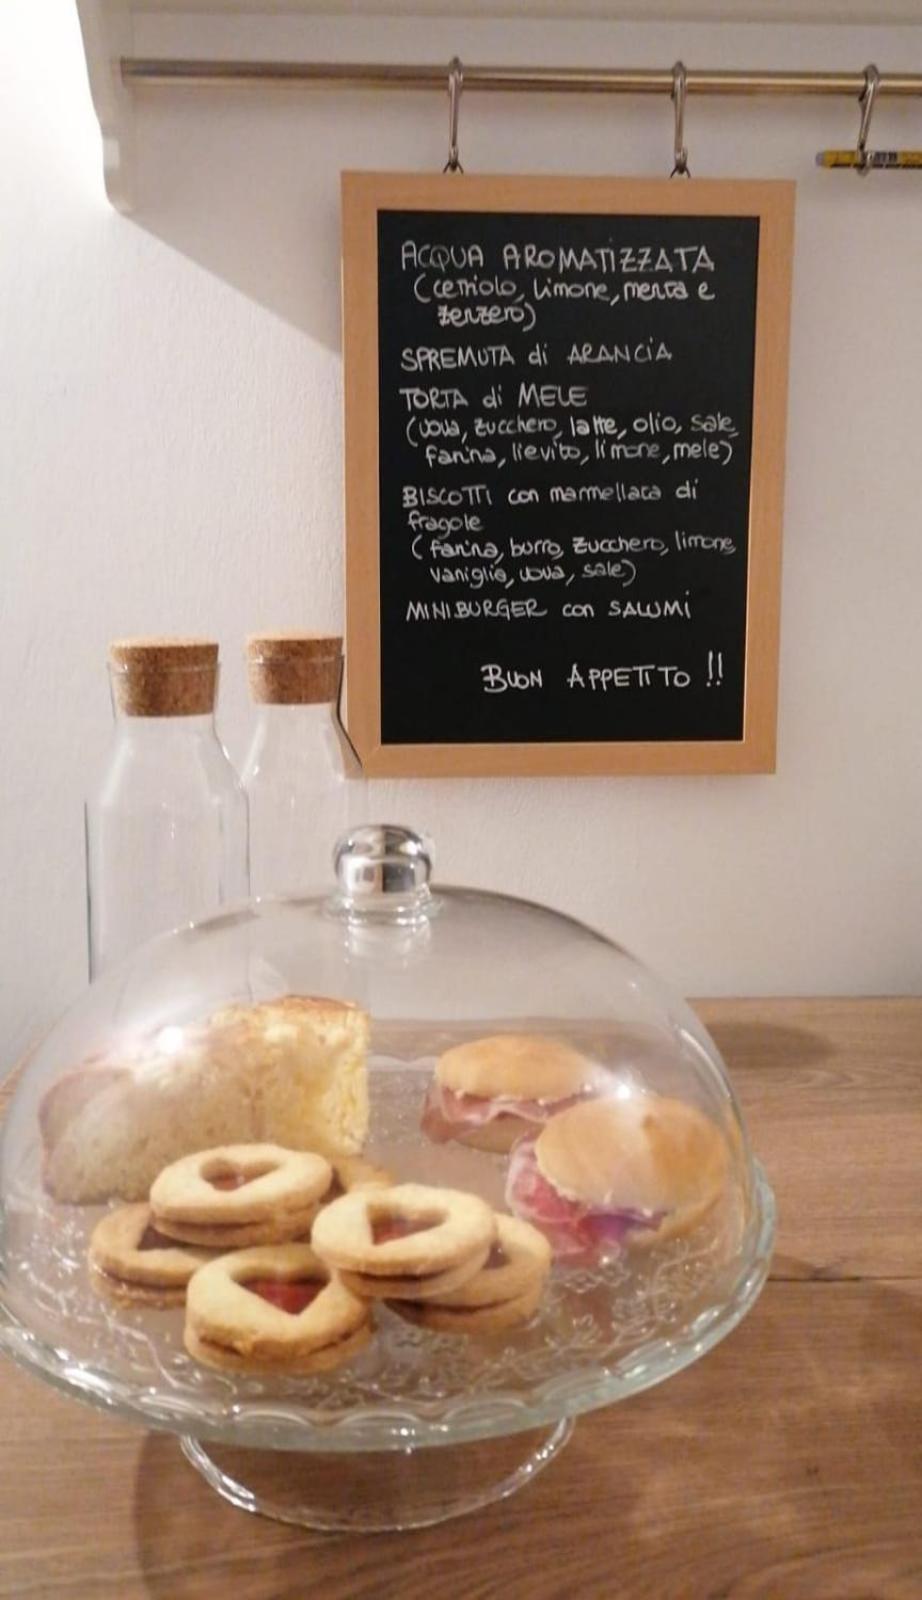 ACQUA AROMATIZZATA
(cetriolo, limone, menta e
zenzero)
SPREMUTA di ARANCIA
TORTA di MELE
(uova, zucchero, latte, olio, sale,
farina, lievito, limone, mele)
BISCOTTI con marmellata di
fragole
(farina, burro, zucchero, limone,
vaniglia, uova, sale)
MINIBURGER con SALUMI
BUON APPETITO !!